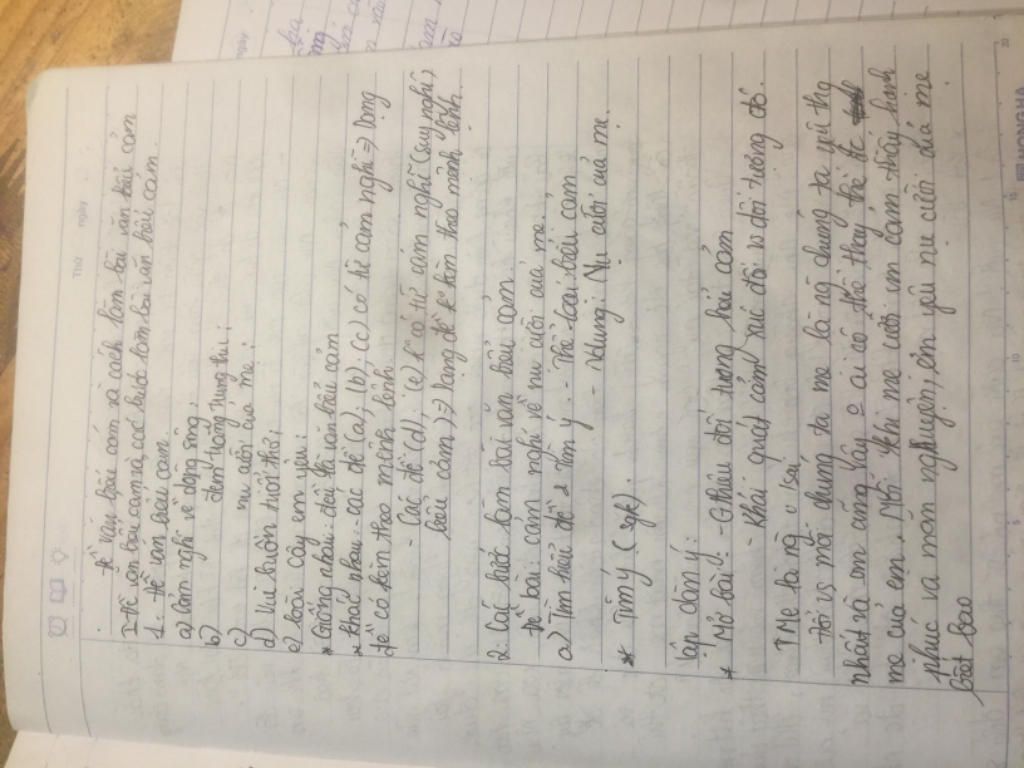 Thứ ngày
Đề văn biểu cảm và cách làm bài văn biểu cảm
I-Đề văn biểu cảm và các bước làm bài văn biểu cảm.
1. Đề văn biểu cảm
a) Cảm nghĩ về dòng sông;
b) đêm trăng trung thu;
c) nụ cười của mẹ;
d) Vui buồn tuổi thơ;
e) Loài cây em yêu;
* Giống nhau: đều là văn biểu cảm
* Khác nhau: - các đề (a); (b); (c) có từ cảm nghĩ => Dạng
đề có kèm theo mệnh lệnh.
- Các đề (d); (e) k có từ cảm nghĩ (suy nghĩ,
biểu cảm) => Dạng đề k kèm theo mệnh lệnh.
2. Các bước làm bài văn biểu cảm.
Đề bài: cảm nghĩ về nụ cười của mẹ.
a) Tìm hiểu đề & tìm ý. - Thể loại: biểu cảm
- Ndung: Nụ cười của mẹ.
* Tìm ý (sgk).
Lập dàn ý:
* Mở bài: - Gthiệu đối tượng biểu cảm
- Khái quát cảm xúc đối với đối tượng đó.
Mẹ là ng
Đối vs mỗi chúng ta mẹ là ng chúng ta yêu thg
nhất và em cũng vậy ai có thể thay thế đc
mẹ của em. Mỗi khi mẹ cười em cảm thấy hạnh
phúc và mãn nguyện, em yêu nụ cười của mẹ
biết bao
HONG HA